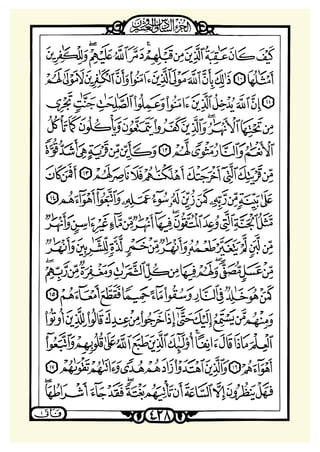 الجزء السادس والعشرون
كَيْفَ كَانَ عَٰقِبَةُ ٱلَّذِينَ مِن قَبْلِهِمْ دَمَّرَ ٱللَّهُ عَلَيْهِمْ وَلِلْكَٰفِرِينَ
أَمْثَٰلُهَا ١٠ ذَٰلِكَ بِأَنَّ ٱللَّهَ مَوْلَى ٱلَّذِينَ ءَامَنُوا۟ وَأَنَّ ٱلْكَٰفِرِينَ لَا مَوْلَىٰ لَهُمْ
١١ إِنَّ ٱللَّهَ يُدْخِلُ ٱلَّذِينَ ءَامَنُوا۟ وَعَمِلُوا۟ ٱلصَّٰلِحَٰتِ جَنَّٰتٍ تَجْرِى
مِن تَحْتِهَا ٱلْأَنْهَٰرُ وَٱلَّذِينَ كَفَرُوا۟ يَتَمَتَّعُونَ وَيَأْكُلُونَ كَمَا تَأْكُلُ
ٱلْأَنْعَٰمُ وَٱلنَّارُ مَثْوًى لَّهُمْ ١٢ وَكَأَيِّن مِّن قَرْيَةٍ هِىَ أَشَدُّ قُوَّةً
مِّن قَرْيَتِكَ ٱلَّتِىٓ أَخْرَجَتْكَ أَهْلَكْنَٰهُمْ فَلَا نَاصِرَ لَهُمْ ١٣ أَفَمَن كَانَ
عَلَىٰ بَيِّنَةٍ مِّن رَّبِّهِۦ كَمَن زُيِّنَ لَهُۥ سُوٓءُ عَمَلِهِۦ وَٱتَّبَعُوٓا۟ أَهْوَآءَهُم ١٤
مَّثَلُ ٱلْجَنَّةِ ٱلَّتِى وُعِدَ ٱلْمُتَّقُونَ فِيهَآ أَنْهَٰرٌ مِّن مَّآءٍ غَيْرِ ءَاسِنٍ وَأَنْهَٰرٌ
مِّن لَّبَنٍ لَّمْ يَتَغَيَّرْ طَعْمُهُۥ وَأَنْهَٰرٌ مِّنْ خَمْرٍ لَّذَّةٍ لِّلشَّٰرِبِينَ وَأَنْهَٰرٌ
مِّنْ عَسَلٍ مُّصَفًّى وَلَهُمْ فِيهَا مِن كُلِّ ٱلثَّمَرَٰتِ وَمَغْفِرَةٌ مِّن رَّبِّهِمْ
كَمَنْ هُوَ خَٰلِدٌ فِى ٱلنَّارِ وَسُقُوا۟ مَآءً حَمِيمًا فَقَطَّعَ أَمْعَآءَهُمْ ١٥
وَمِنْهُم مَّن يَسْتَمِعُ إِلَيْكَ حَتَّىٰٓ إِذَا خَرَجُوا۟ مِنْ عِندِكَ قَالُوا۟ لِلَّذِينَ أُوتُوا۟
ٱلْعِلْمَ مَاذَا قَالَ ءَانِفًا أُو۟لَٰٓئِكَ ٱلَّذِينَ طَبَعَ ٱللَّهُ عَلَىٰ قُلُوبِهِمْ وَٱتَّبَعُوٓا۟
أَهْوَآءَهُمْ ١٦ وَٱلَّذِينَ ٱهْتَدَوْا۟ زَادَهُمْ هُدًى وَءَاتَىٰهُمْ تَقْوَىٰهُمْ ١٧
فَهَلْ يَنظُرُونَ إِلَّا ٱلسَّاعَةَ أَن تَأْتِيَهُم بَغْتَةً فَقَدْ جَآءَ أَشْرَاطُهَا
٤٢٨